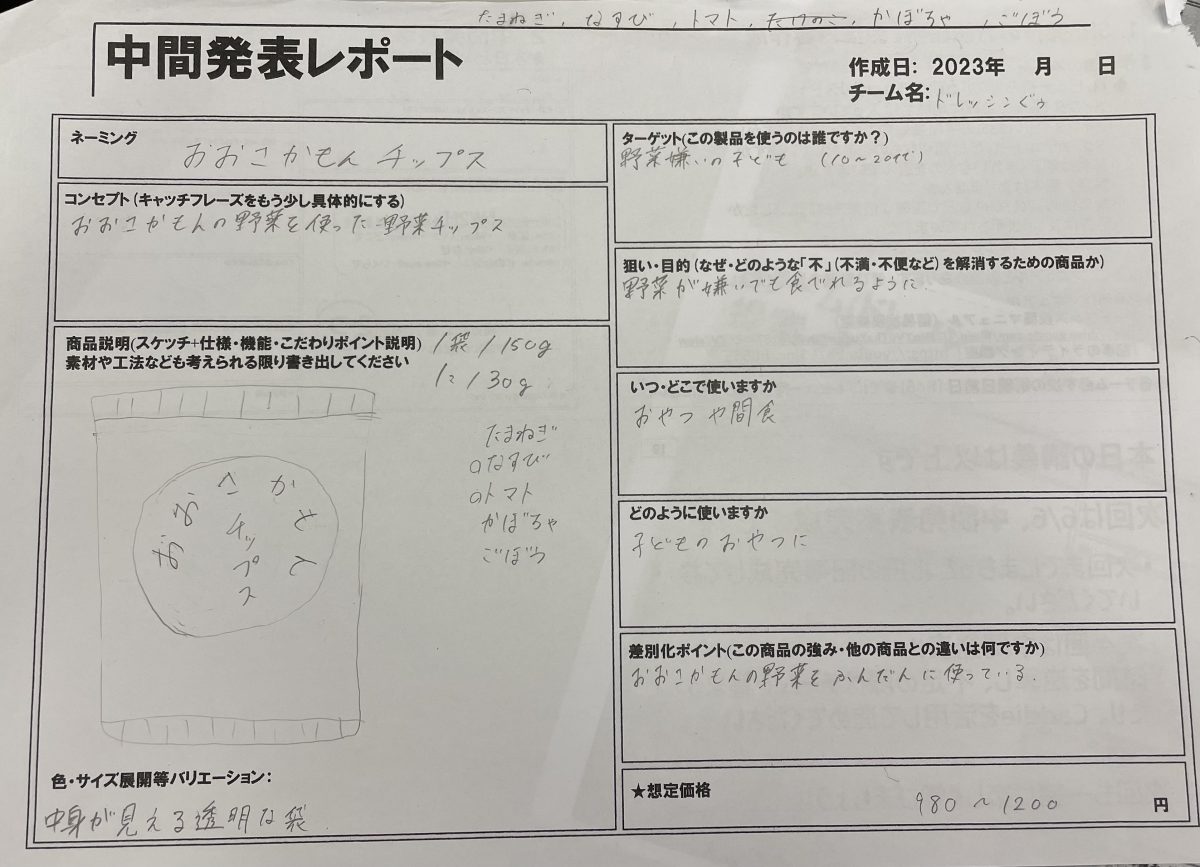 たまねぎ, なすび, トマト, たけのこ, かぼちゃ, ごぼう
中間発表レポート
作成日: 2023年 月 日
チーム名: ドレッシンぐぅ
ネーミング
おおさかもん チップス
コンセプト(キャッチフレーズをもう少し具体的にする)
おおさかもんの野菜を使った野菜チップス
商品説明(スケッチ+仕様・機能・こだわりポイント説明)
素材や工法なども考えられる限り書き出してください
1袋/150g
1コ/30g
たまねぎ
○なすび
○トマト
かぼちゃ
ごぼう
おおさかもん
チップス
色・サイズ展開等バリエーション:
中身が見える透明な袋
ターゲット(この製品を使うのは誰ですか?)
野菜嫌いの子ども (10~20代)
狙い・目的(なぜ・どのような「不」(不満・不便など)を解消するための商品か)
野菜が嫌いでも食べれるように.
いつ・どこで使いますか
おやつや間食
どのように使いますか
子どものおやつに
差別化ポイント(この商品の強み・他の商品との違いは何ですか)
おおさかもんの野菜をふんだんに使っている.
★想定価格
980~1200 円